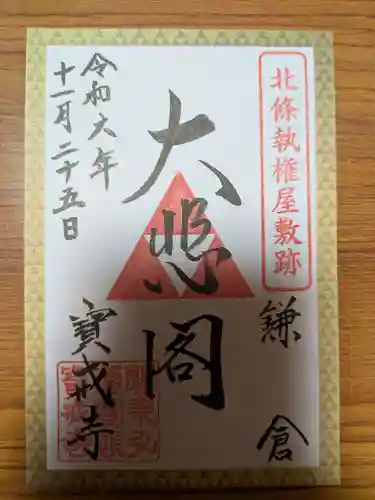 北條執権屋敷跡
鎌倉
大悲閣
令和六年
十一月二十五日
寶戒寺